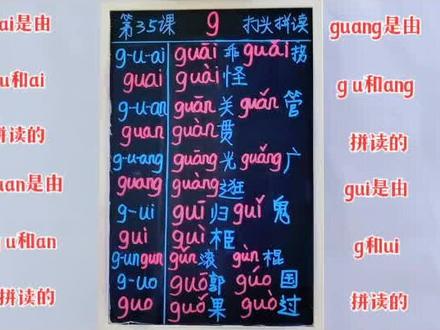 ai是由
u和ai
拼读的
uan是由
u和an
拼读的
第35课 g 打头拼读
g-u-ai guāi 乖 guǎi 拐
guai guài 怪
g-u-an guān 关 guǎn 管
guan guàn 贯
g-u-ang guāng 光 guǎng 广
guang guàng 逛
g-ui guī 归 guǐ 鬼
gui guì 柜
g-un gun gǔn 滚 gùn 棍
g-uo guō 郭 guó 国
guo guǒ 果 guò 过
guang是由
g u和ang
拼读的
gui是由
g和ui
拼读的